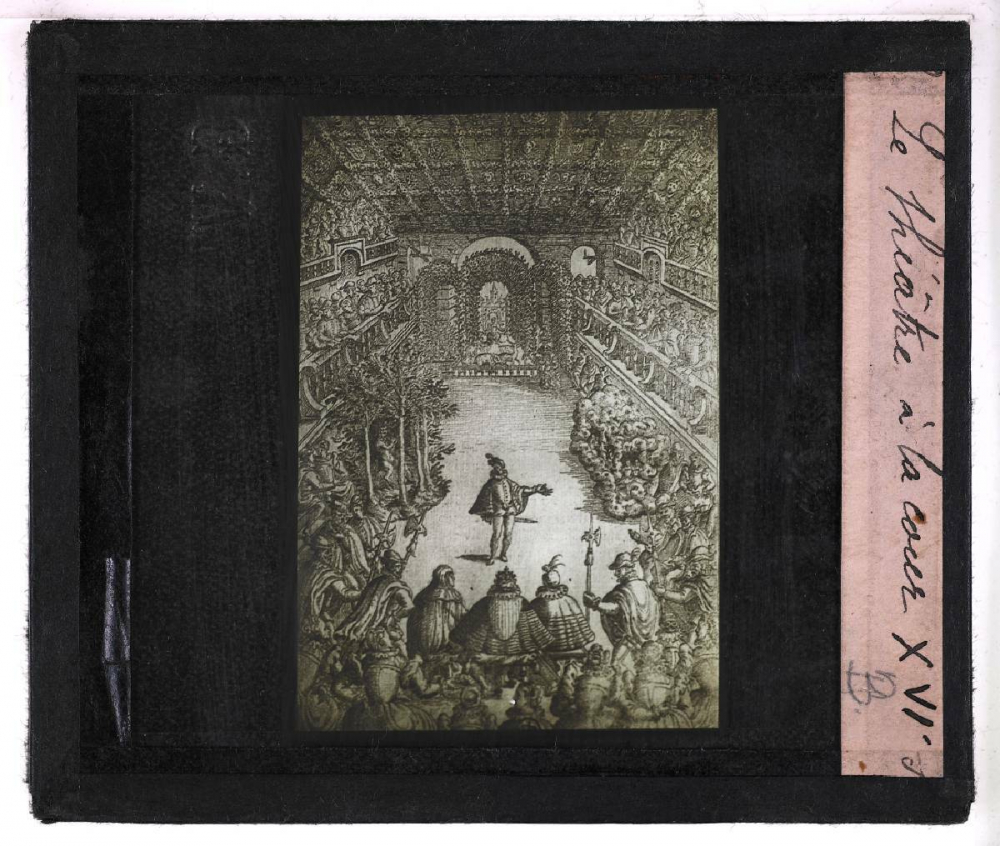 Le théâtre à la cour XVI's
B.